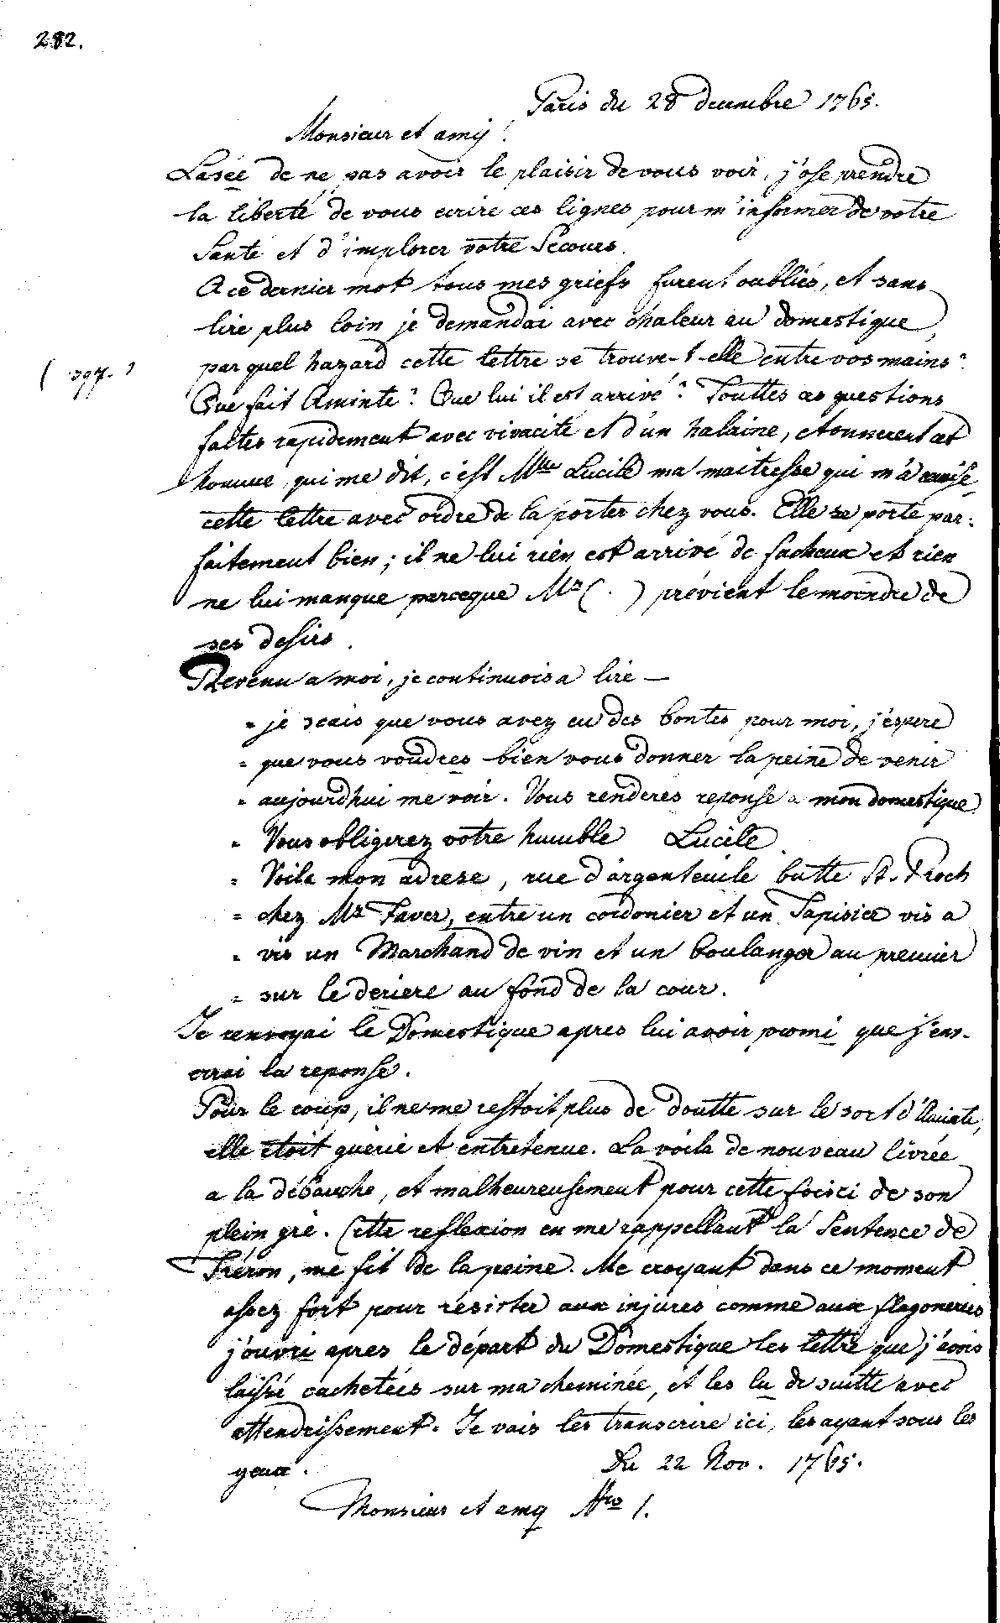 282.
Paris du 28 decembre 1765.
Monsieur et amy!
Lasée de ne pas avoir le plaisir de vous voir, j'ose prendre
la liberté de vous ecrire ces lignes pour m'informer de votre
Santé et d'implorer votre Secours.
A ce dernier mot tous mes griefs furent oubliés, et sans
lire plus loin je demandai avec chaleur au domestique,
par quel hazard cette lettre se trouve-t-elle entre vos mains?
Que fait Aminte? Que lui il est arrivé? Touttes ces questions
faites rapidement avec vivacité et d'un halaine, etonnerent cet
homme, qui me dit, c'est Mlle Lucile ma maitresse qui m'a remise
cette lettre avec ordre de la porter chez vous. Elle se porte par-
faitement bien; il ne lui rien est arrivé de facheux et rien
ne lui manque parceque Mr ( . ) prévient le moindre de
ses desirs.
Revenu a moi, je continuois a lire —
" je scais que vous avez eu des bontes pour moi, j'espere
" que vous voudres bien vous donner la peine de venir
" aujourdhui me voir. Vous renderes reponse a mon domestique
" Vous obligerez votre humble Lucile.
" Voila mon adrese, rue d'argenteuile butte St. Roch
" chez Mr Faver, entre un cordonier et un Tapisier vis a
" vis un Marchand de vin et un boulanger au premier
" sur le deriere au fond de la cour.
Je renvoyai le Domestique apres lui avoir promi que j'en-
verrai la reponse.
Pour le coup, il ne me restoit plus de doutte sur le sort d'Aminte,
elle etoit guérie et entretenue. La voila de nouveau livrée
a la débauche, et malheureusement pour cette fois ici de son
plein gré. Cette reflexion en me rappellant la Sentence de
Fréron, me fit de la peine. Me croyant dans ce moment
assez fort pour resister aux injures comme aux flagoneries
j'ouvri apres le départ du Domestique les lettre que j'avois
laissé cachetées sur ma cheminée, et les lu de suitte avec
attendrissement. Je vais les transcrire ici, les ayant sous les
yeux. Du 22 Nov. 1765.
Monsieur et amy Nro 1.